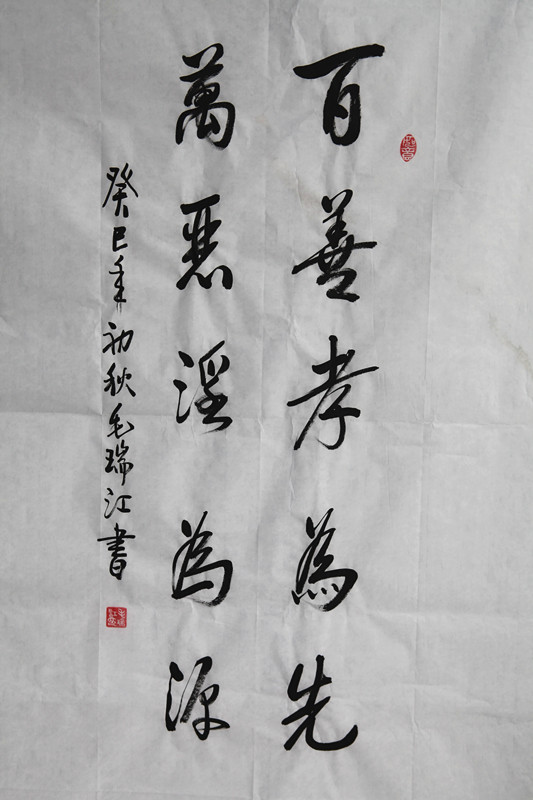 百善孝為先
萬惡淫為源
癸巳年初秋毛瑞江書